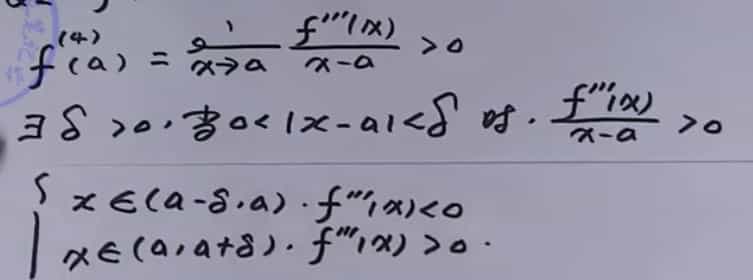 f⁽⁴⁾(a) = lim_{x→a} f'''(x)/(x-a) > 0
∃ δ > 0, 当 0 < |x-a| < δ 时, f'''(x)/(x-a) > 0
{ x ∈ (a-δ, a), f'''(x) < 0
x ∈ (a, a+δ), f'''(x) > 0.